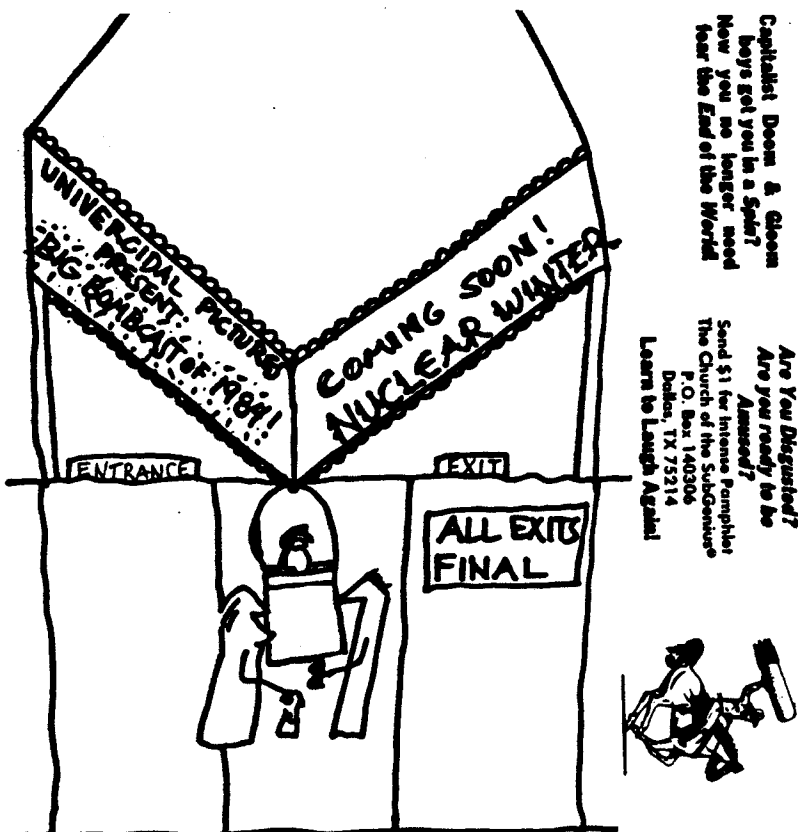 UNIVERCIDAL PICTURES
PRESENT:
BIG BOMBCAST OF 1984!
COMING SOON!
NUCLEAR WINTER
ENTRANCE
EXIT
ALL EXITS
FINAL
Capitalist Doom & Gloom
boys got you in a Spin?
Now you no longer need
fear the End of the World!
Are You Disgusted?
Are you ready to be
Amused?
Send $1 for Intense Pamphlet
The Church of the SubGenius®
P.O. Box 140306
Dallas, TX 75214
Learn to Laugh Again!